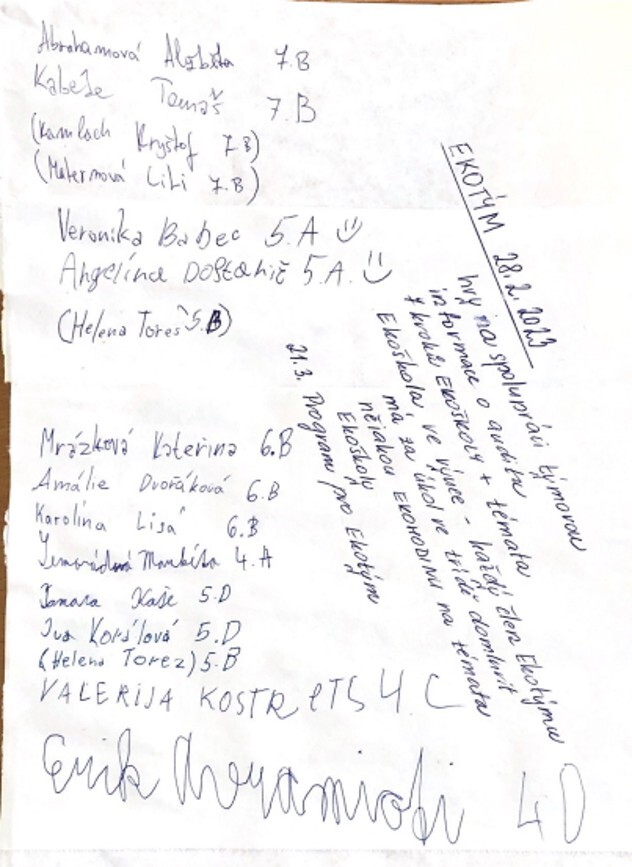 Abrahamová Alžběta 7.B
Kabeše Tomáš 7.B
(Kamlach Kryštof 7.B)
(Maternová Lili 7.B)
Veronika Babec 5.A
Angelína Dostanič 5.A.
(Helena Tores 5.B)
Mrázková Kateřina 6.B
Amálie Dvořáková 6.B
Karolína Lisá 6.B
Markéta 4.A
Tamara Kaše 5.D
Iva Korálová 5.D
(Helena Torez) 5.B
VALERIJA KOSTRETS 4.C
Erik 4D
EKOTÝM 28.2.2023
hry na spolupráci týmovou
informace o auditu
7 kroků EKOŠKOLY + témata
Ekoškola ve výuce - každý člen Ekotýmu
má za úkol ve třídě domluvit
nějakou EKOHODINU na témata
Ekoškoly
21.3. Program pro Ekotým